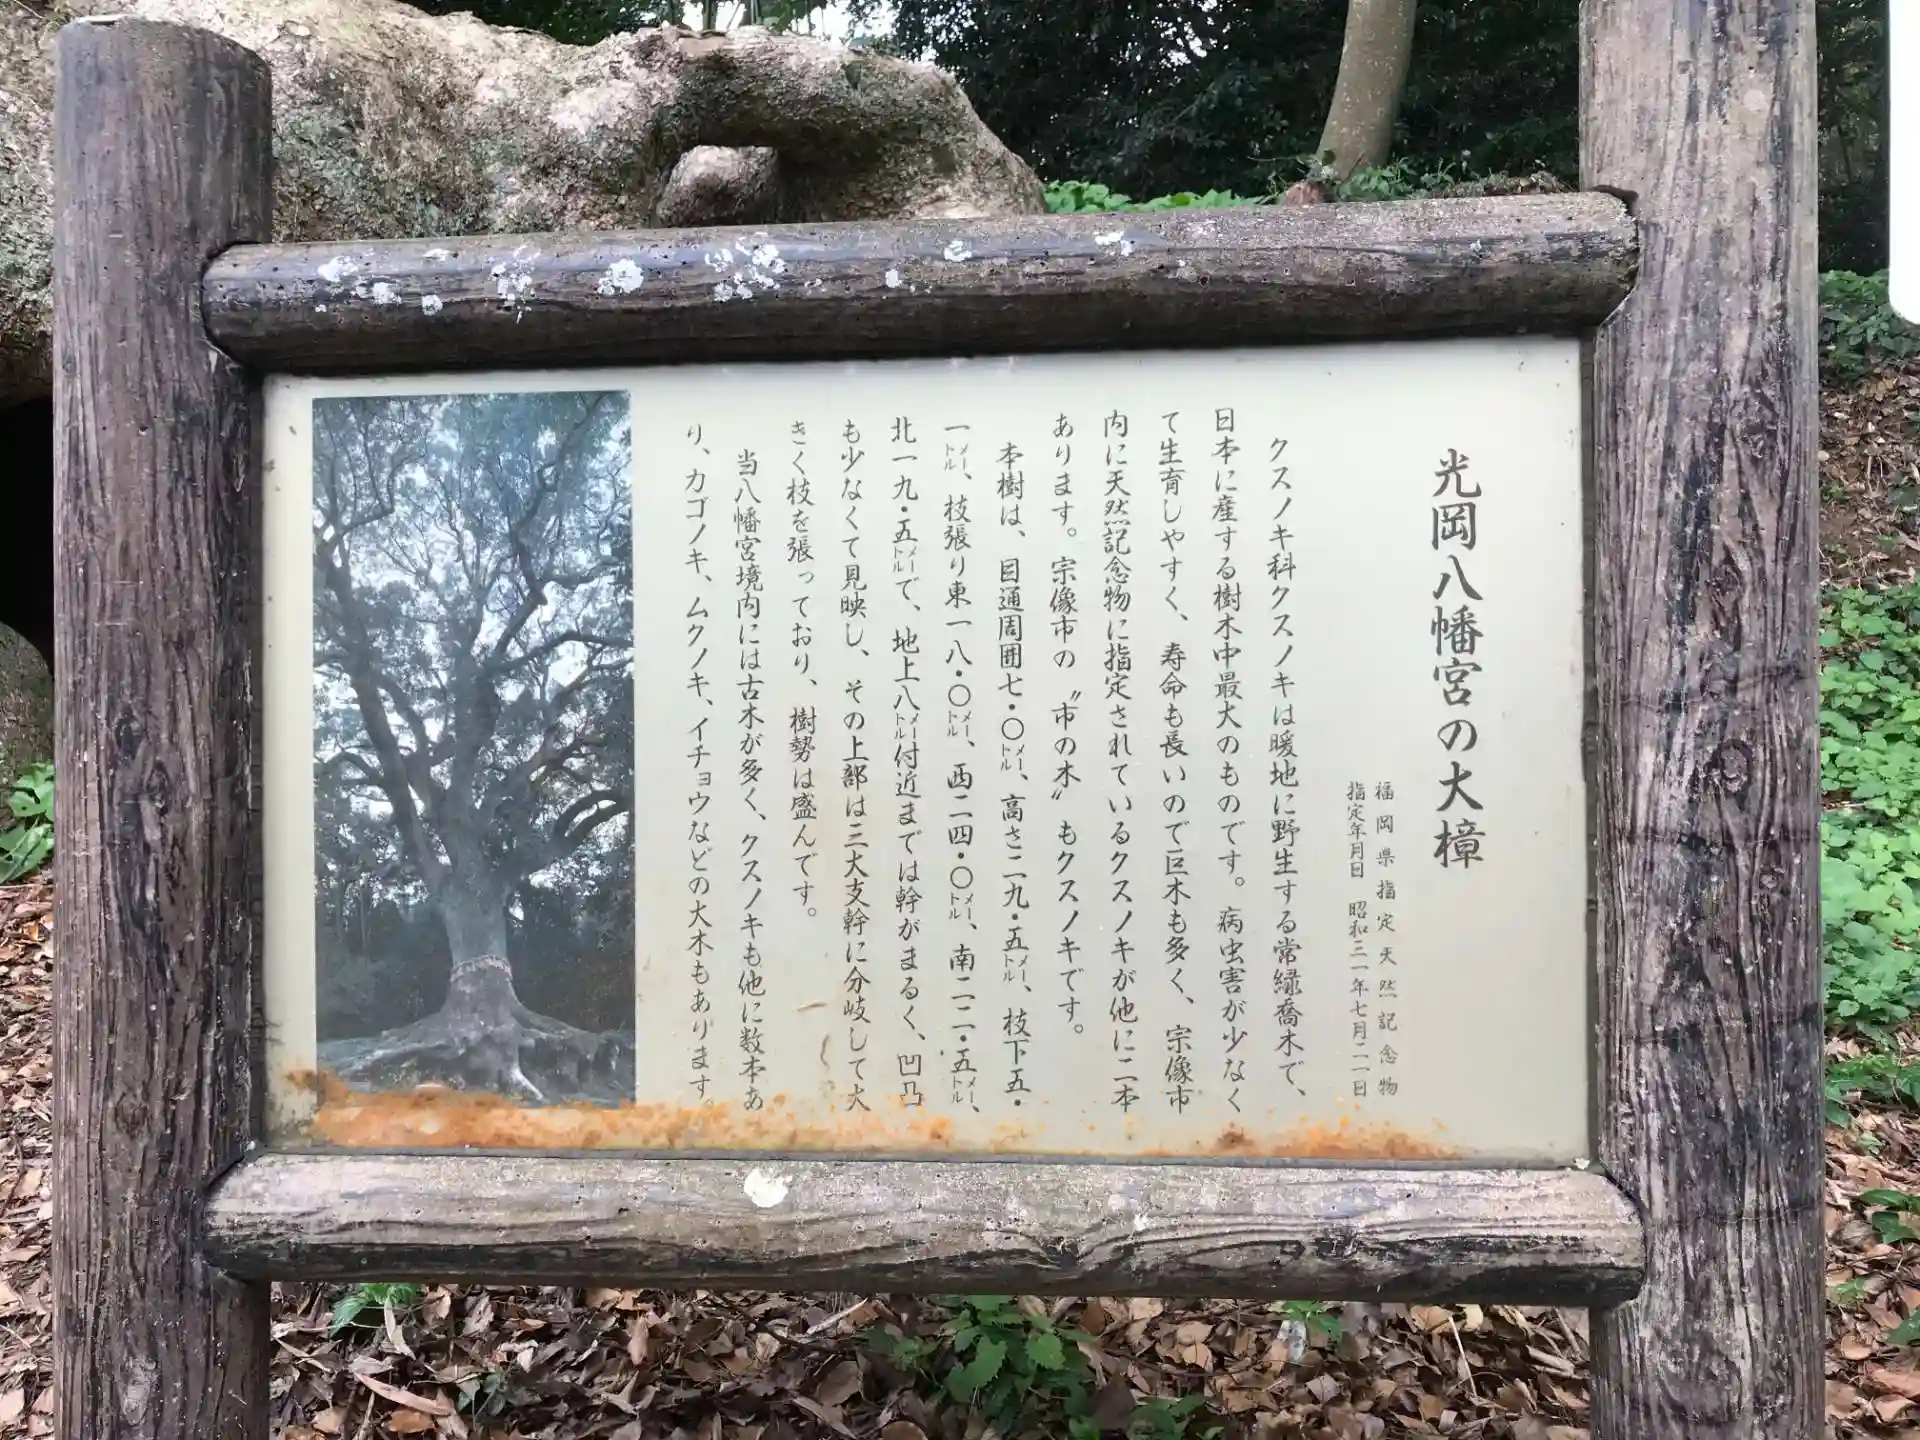 光岡八幡宮の大樟
福岡県指定天然記念物
指定年月日　昭和三一年七月二一日
クスノキ科クスノキは暖地に野生する常緑喬木で、
日本に産する樹木中最大のものです。病虫害が少なく
て生育しやすく、寿命も長いので巨木も多く、宗像市
内に天然記念物に指定されているクスノキが他に二本
あります。宗像市の〝市の木〟もクスノキです。
本樹は、目通周囲七・〇メートル、高さ二九・五メートル、枝下五・
一メートル、枝張り東一八・〇メートル、西二四・〇メートル、南二二・五メートル、
北一九・五メートルで、地上八メートル付近までは幹がまるく、凹凸
も少なくて見映し、その上部は三大支幹に分岐して大
きく枝を張っており、樹勢は盛んです。
当八幡宮境内には古木が多く、クスノキも他に数本あ
り、カゴノキ、ムクノキ、イチョウなどの大木もあります。